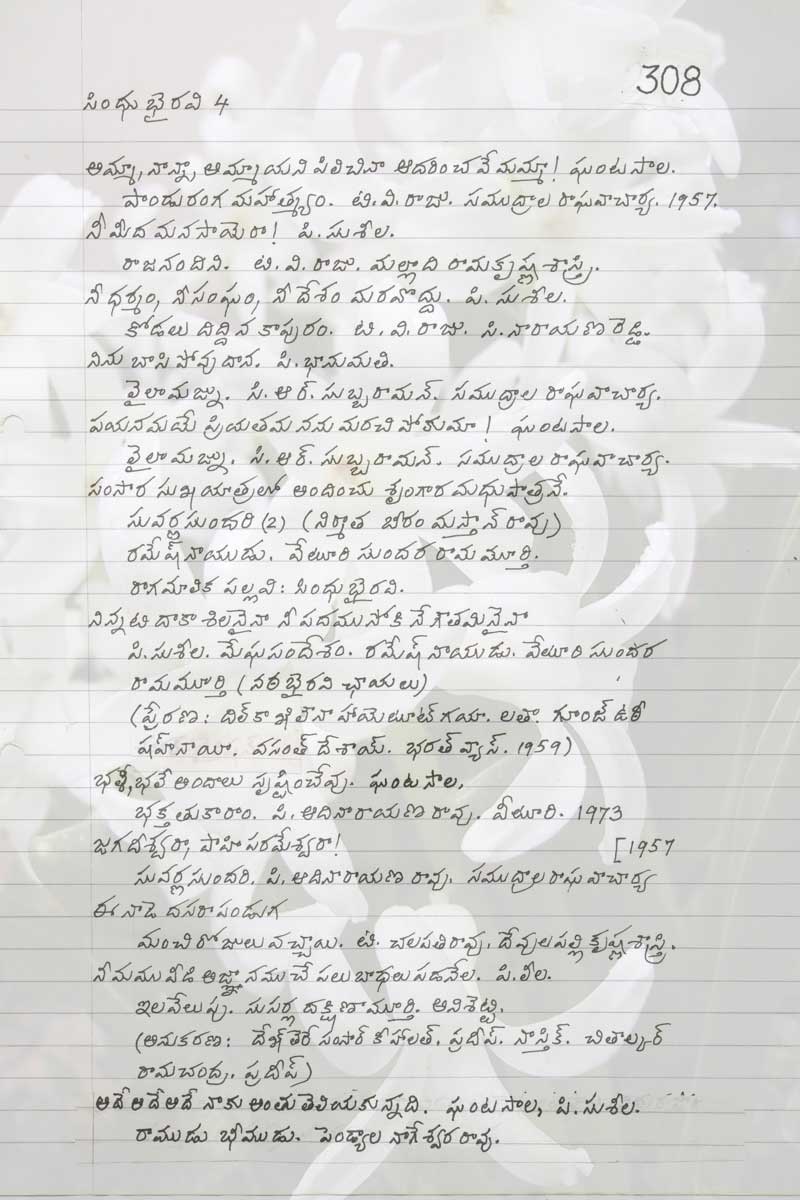 308
సింధు భైరవి 4
అమ్మా, నాన్నా, అమ్మాయని పిలిచినా ఆదరించవేమమ్మా! ఘంటసాల.
పాండురంగ మహాత్మ్యం. టి.వి.రాజు. సముద్రాల రాఘవాచార్య. 1957.
నీ మీద మనసాయెరా! పి.సుశీల.
రాజనందిని. టి.వి.రాజు. మల్లాది రామకృష్ణ శాస్త్రి.
నీ ధర్మం, నీ సంఘం, నీ దేశం మరవొద్దు. పి. సుశీల.
కోడలు దిద్దిన కాపురం. టి.వి.రాజు. సి.నారాయణ రెడ్డి.
నిను బాసి పోవుదాన. పి.భానుమతి.
లైలామజ్ను. సి.ఆర్.సుబ్బరామన్. సముద్రాల రాఘవాచార్య.
పయనమయే ప్రియతమ నను మరచి పోకుమా! ఘంటసాల.
లైలా మజ్ను. సి.ఆర్.సుబ్బరామన్. సముద్రాల రాఘవాచార్య.
సంసార సుఖ యాత్రలో అందించు శృంగార మధుపాత్రనే.
సువర్ణ సుందరి (2) (నిర్మాత బీరం మస్తాన్ రావు)
రమేష్ నాయుడు. వేటూరి సుందర రామమూర్తి.
రాగమాలిక పల్లవి: సింధు భైరవి.
నిన్నటి దాకా శిలనైనా నీ పదము సోకి నే గౌతమినైనా
పి.సుశీల. మేఘసందేశం. రమేష్ నాయుడు. వేటూరి సుందర
రామమూర్తి (నఠభైరవి ఛాయలు)
(ప్రేరణ: దిల్ కా ఖిలోనా హాయెటూట్ గయా. లతా. గూంజ్ ఉఠీ
షహ్ నాయీ. వసంత్ దేశాయ్. భరత్ వ్యాస్. 1959)
భళి, భలే అందాలు సృష్టించేవు. ఘంటసాల.
భక్త తుకారాం. పి.ఆదినారాయణ రావు. వీటూరి. 1973
జగదీశ్వరా, పాహి పరమేశ్వరా! [1957
సువర్ణ సుందరి. పి.ఆదినారాయణ రావు. సముద్రాల రాఘవాచార్య
ఈ నాడె దసరా పండుగ
మంచి రోజులు వచ్చాయి. టి. చలపతిరావు. దేవులపల్లి కృష్ణశాస్త్రి.
నీమము వీడి అజ్ఞానముచే పలు బాధలు పడనేల. పి.లీల.
ఇలవేలుపు. సుసర్ల దక్షిణామూర్తి. అనిశెట్టి.
(అనుకరణ: దేఖ్ తెరే సంసార్ కీ హాలత్. ప్రదీప్. నాస్తిక్. చితాల్కర్
రామచంద్ర. ప్రదీప్)
అదే అదే అదే నాకు అంతు తెలియకున్నది. ఘంటసాల, పి.సుశీల.
రాముడు భీముడు. పెండ్యాల నాగేశ్వర రావు.